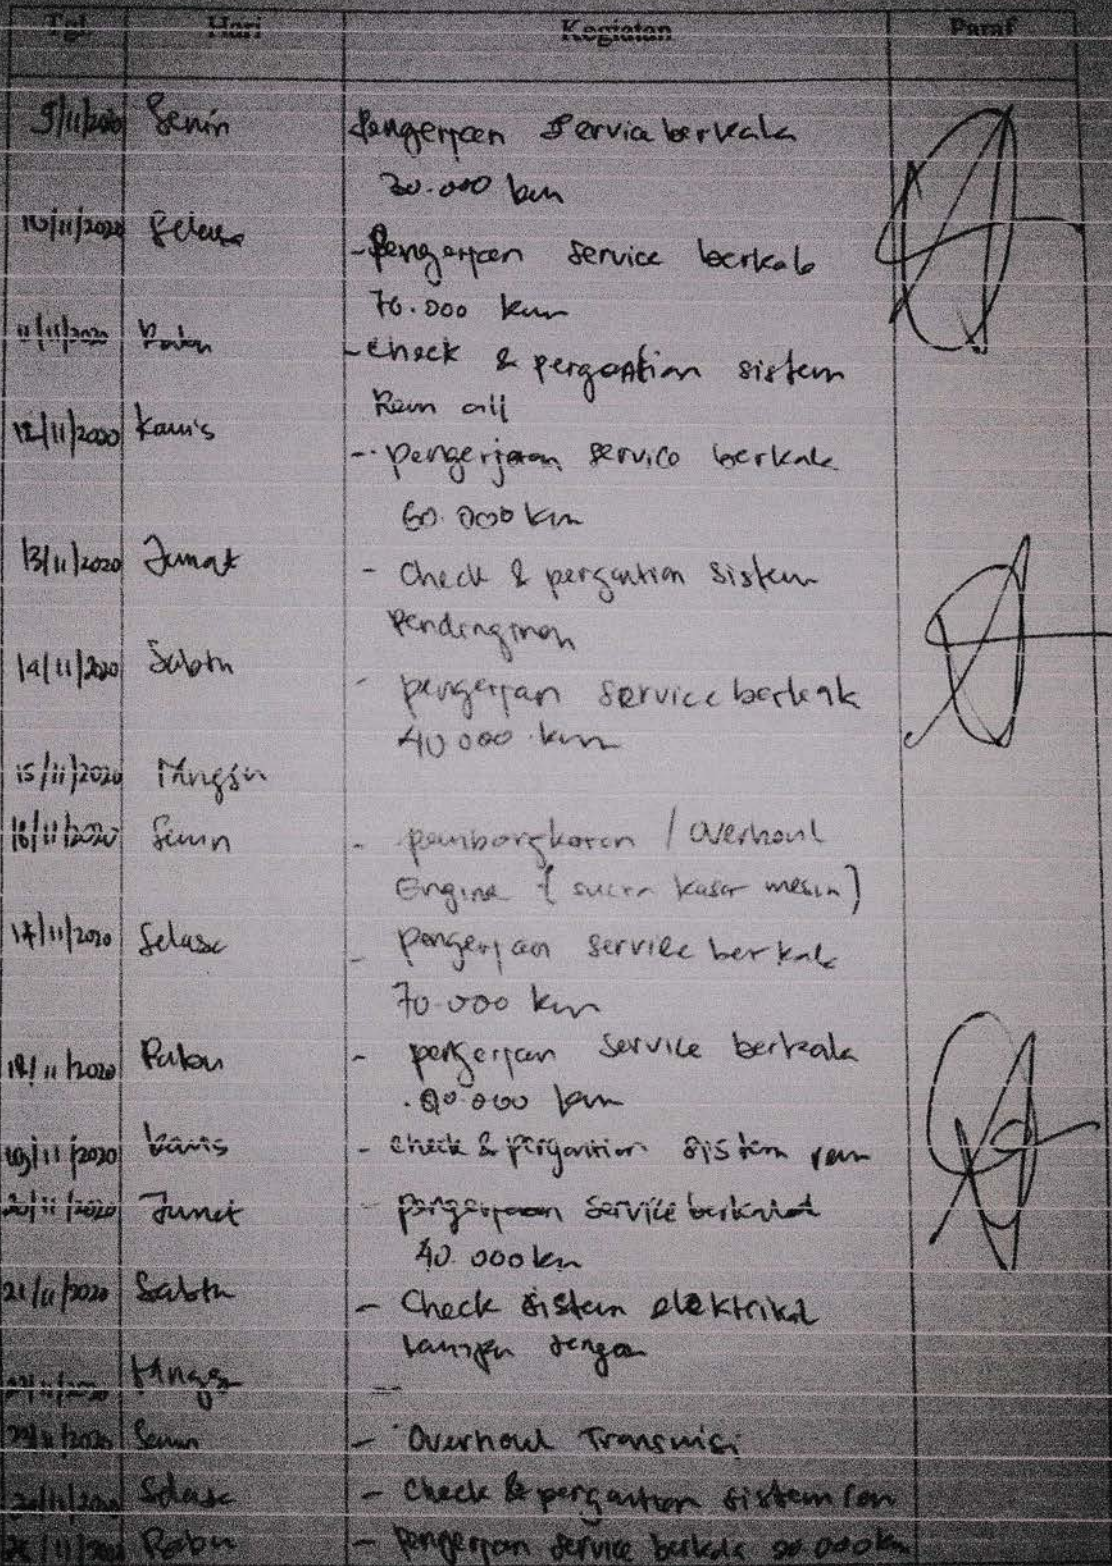 Tgl. Hari Kegiatan Paraf
9/11/2020 Senin Pengerjaan Service berkala
30.000 km
10/11/2020 Selasa - Pengerjaan service berkala
70.000 km
11/11/2020 Rabu - Check & pergantian sistem
Rem all
12/11/2020 Kamis - pengerjaan service berkala
60.000 km
13/11/2020 Jumat - Check & pergantian sistem
Pendinginan
14/11/2020 Sabtu - pengerjaan service berkala
40.000 km
15/11/2020 Minggu
16/11/2020 Senin - pembongkaran / Overhoul
Engine (suara kasar mesin)
17/11/2020 Selasa - pengerjaan service berkala
70.000 km
18/11/2020 Rabu - pengerjaan service berkala
km
19/11/2020 Kamis - check & pergantian sistem rem
20/11/2020 Jumat - pengerjaan service berkala
40.000 km
21/11/2020 Sabtu - Check sistem elektrikal
lampu
Minggu -
Senin - Overhoul Transmisi
Selasa - Check & pergantian sistem rem
Rabu - Pengerjaan service berkala km